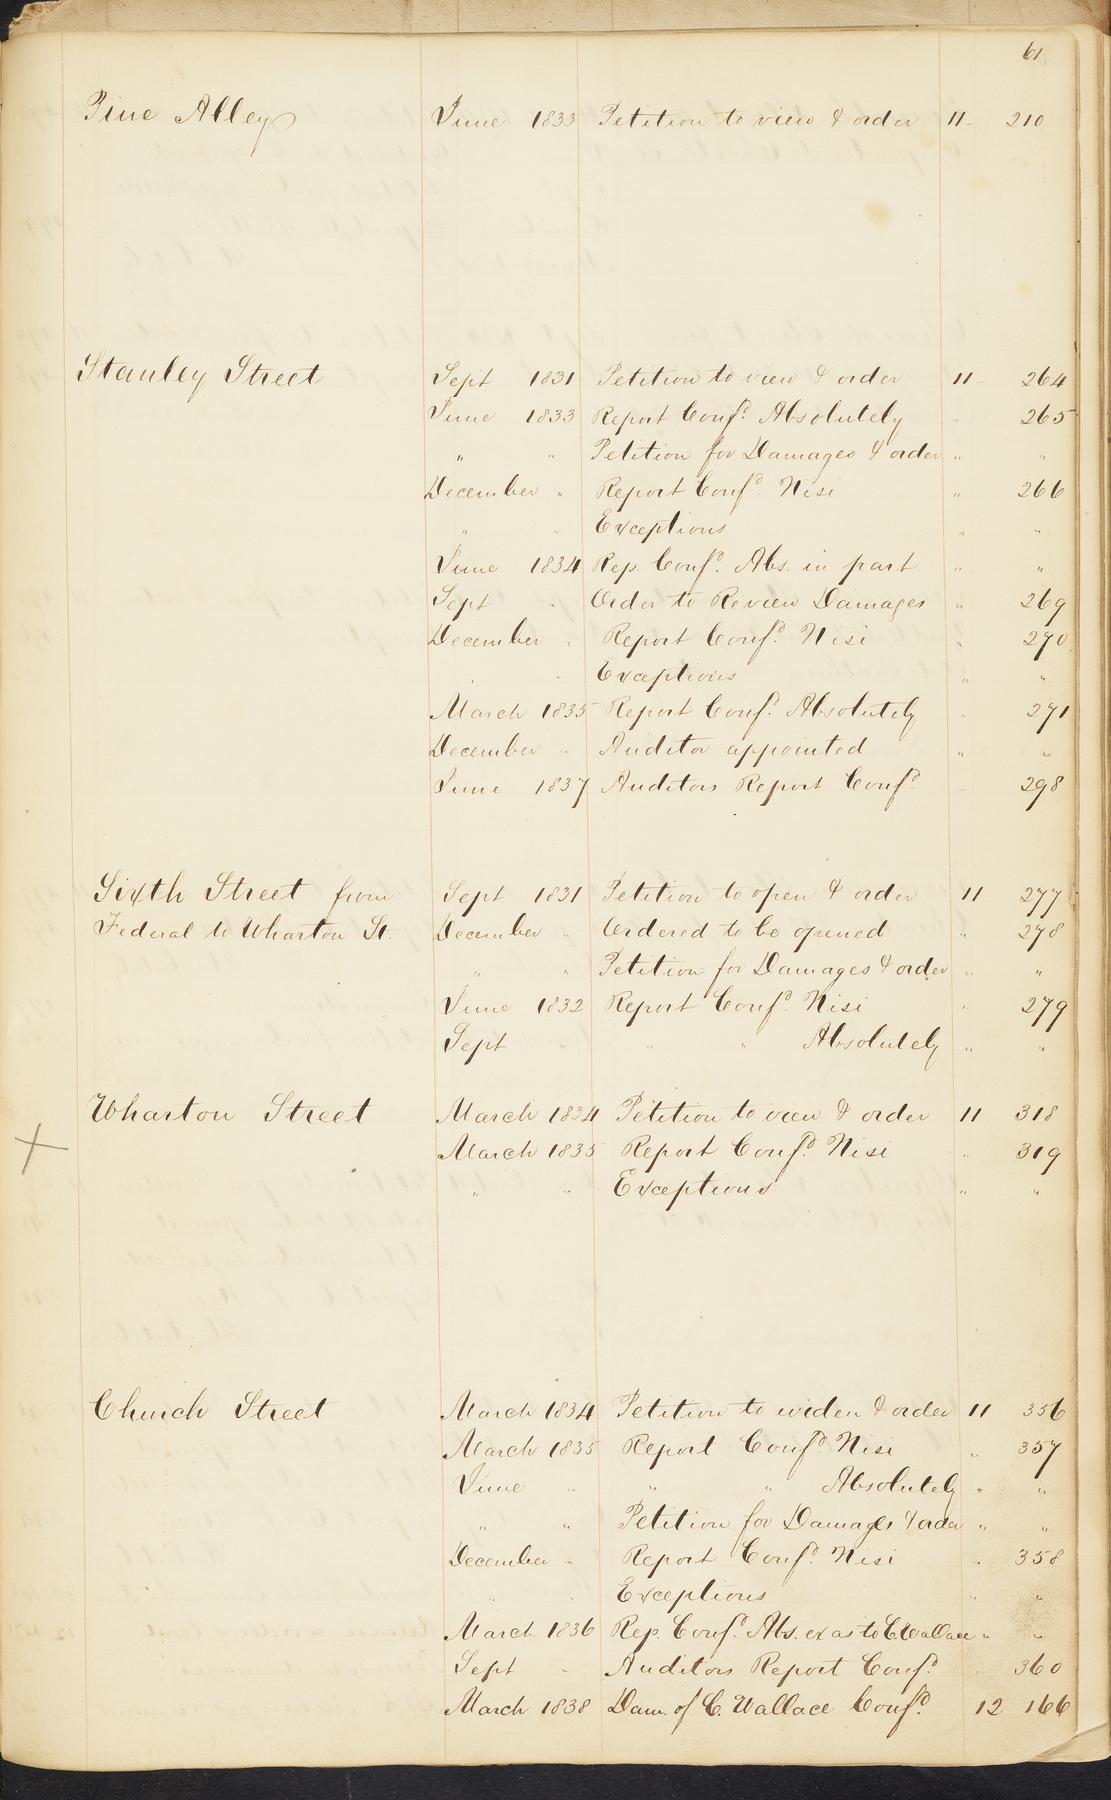 61
Pine Alley June 1833 Petition to view & order 11 210
Stanley Street Sept 1831 Petition to view & order 11 264
June 1833 Report Confd. Absolutely " 265
" " Petition for Damages & order " "
December " Report Confd. Nisi " 266
" " Exceptions " "
June 1834 Rep. Confd. Abs. in part " "
Sept " Order to Review Damages " 269
December " Report Confd. Nisi " 270
" " Exceptions " "
March 1835 Report Confd. Absolutely " 271
December " Auditor appointed " "
June 1837 Auditors Report Confd " 298
Sixth Street from Sept 1831 Petition to open & order 11 277
Federal to Wharton St. December " Ordered to be opened " 278
" " Petition for Damages & order " "
June 1832 Report Confd Nisi " 279
Sept " " " Absolutely " "
Wharton Street March 1834 Petition to view & order 11 318
March 1835 Report Confd. Nisi " 319
" " Exceptions " "
Church Street March 1834 Petition to widen & order 11 356
March 1835 Report Confd Nisi " 357
June " " " Absolutely " "
" " Petition for Damages & order " "
December " Report Confd. Nisi " 358
" " Exceptions " "
March 1836 Rep. Confd. Abs. ex as to C. Wallace " "
Sept " Auditors Report Confd. " 360
March 1838 Dam. of C. Wallace Confd. 12 166